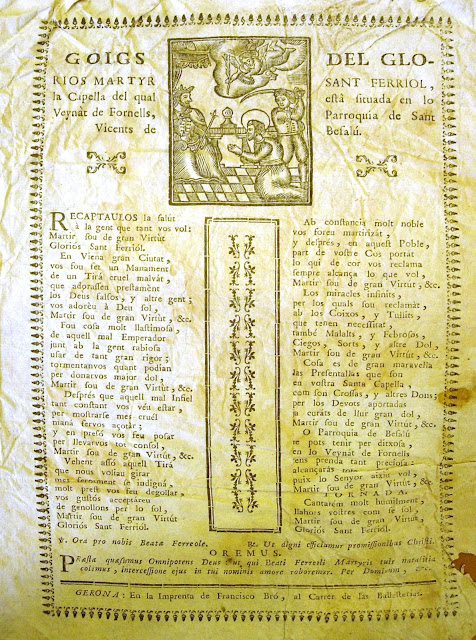 GOIGS DEL GLO-
RIOS MARTYR SANT FERRIOL,
la Capella del qual està situada en lo
Veynat de Fornells, Parroquia de Sant
Vicents de Besalú.
RECAPTAULOS la salút
à la gent que tant vos vol:
Martir sou de gran Virtút
Gloriós Sant Ferriól.
En Viena gran Ciutat,
vos fou fet un Manament
de un Tirá cruel malvát,
que adorasseu prestament
los Deus falsos, y altre gent;
vos adoreu à Deu sol,
Martir sou de gran Virtút, &c.
Fou cosa molt llastimosa,
de aquell mal Emperador
junt ab la gent rabiosa
usar de tant gran rigor;
tormentanvos quant podian
per donarvos major dol,
Martir sou de gran Virtút, &c.
Després que aquell mal Insiel
tant constant vos véu estar,
per mostrarse mes cruel
maná servos açotár;
y en presó vos feu posar
per llevarvos tot consol,
Martir sou de gran Virtút, &c.
Vehent assó aquell Tirá
que nous voliau girar
mes ferament se indigná,
molt prest vos feu degollar,
vos gustós acceptáreu
de genollons per lo sol,
Martir sou de gran Virtút
Gloriós Sant Ferriól.
Ab constancia molt noble
vos foreu martirizát,
y després, en aquest Poble,
part de vostre Cos portát
lo qui de cor vos reclama
sempre alcança lo que vol,
Martir sou de gran Virtút, &c.
Los miracles infinits,
per los quals sou reclamát
ab los Coixos, y Tullits,
que tenen necessitát,
també Malalts, y Febrosos,
Ciegos, Sorts, y altre Dol;
Martir sou de gran Virtút, &c.
Cosa es de gran maravella
las Presentallas que son
en vostra Santa Capella,
com son Crossas, y altres Dons;
per los Devots aportadas
à curáts de llur gran dol,
Martir sou de gran Virtút, &c.
O Parroquia de Besalú
be pots tenir per ditosa,
en lo Veynat de Fornells,
tens prenda tant preciosa;
alcançarás
puix lo Senyor axixi vol,
Martir sou de gran Virtút, &c.
TORNADA.
Cantarém molt humilment,
llahors vostres com se sol,
Martir sou de gran Virtút
Gloriós Sant Ferriól.
℣. Ora pro nobis Beate Ferreole. ℟. Ut digni efficiamur promissionibus Christi.
OREMUS.
Præsta quæsumus Omnipotens Deus: ut qui Beati Ferreoli Martyris tui natalitia
colimus, intercessione ejus in tui nominis amore roboremur. Per Dominum, &c.
GERONA: En la Imprenta de Francisco Bró, al Carrer de las Ballesterias.